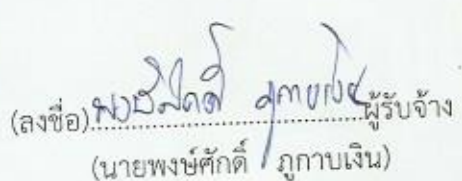 (ลงชื่อ)พงษ์ศักดิ์ ภูกาบเงินผู้รับจ้าง
(นายพงษ์ศักดิ์ ภูกาบเงิน)